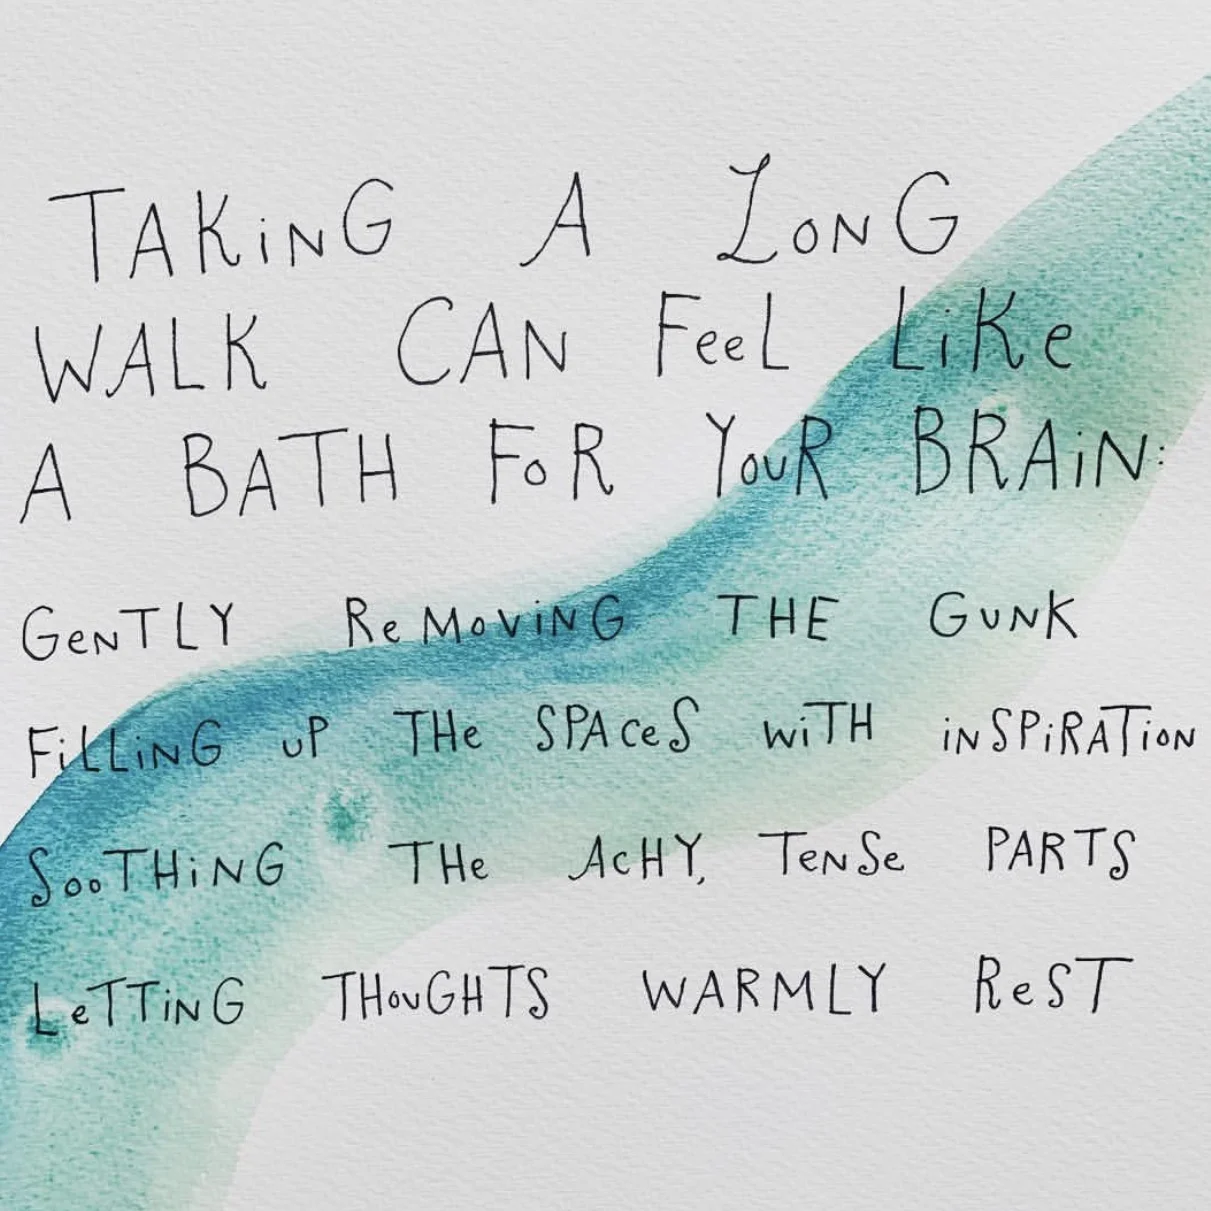 TAKiNG A LoNG
WALK CAN FeeL LiKe
A BATH FoR YouR BRAiN:
GeNTLY ReMoViNG THE GUNK
FiLLiNG uP THe SPAceS wiTH iNSPiRATioN
SooTHiNG THe AcHY, TeNSe PARTS
LeTTiNG THouGHTS WARMLY ReST